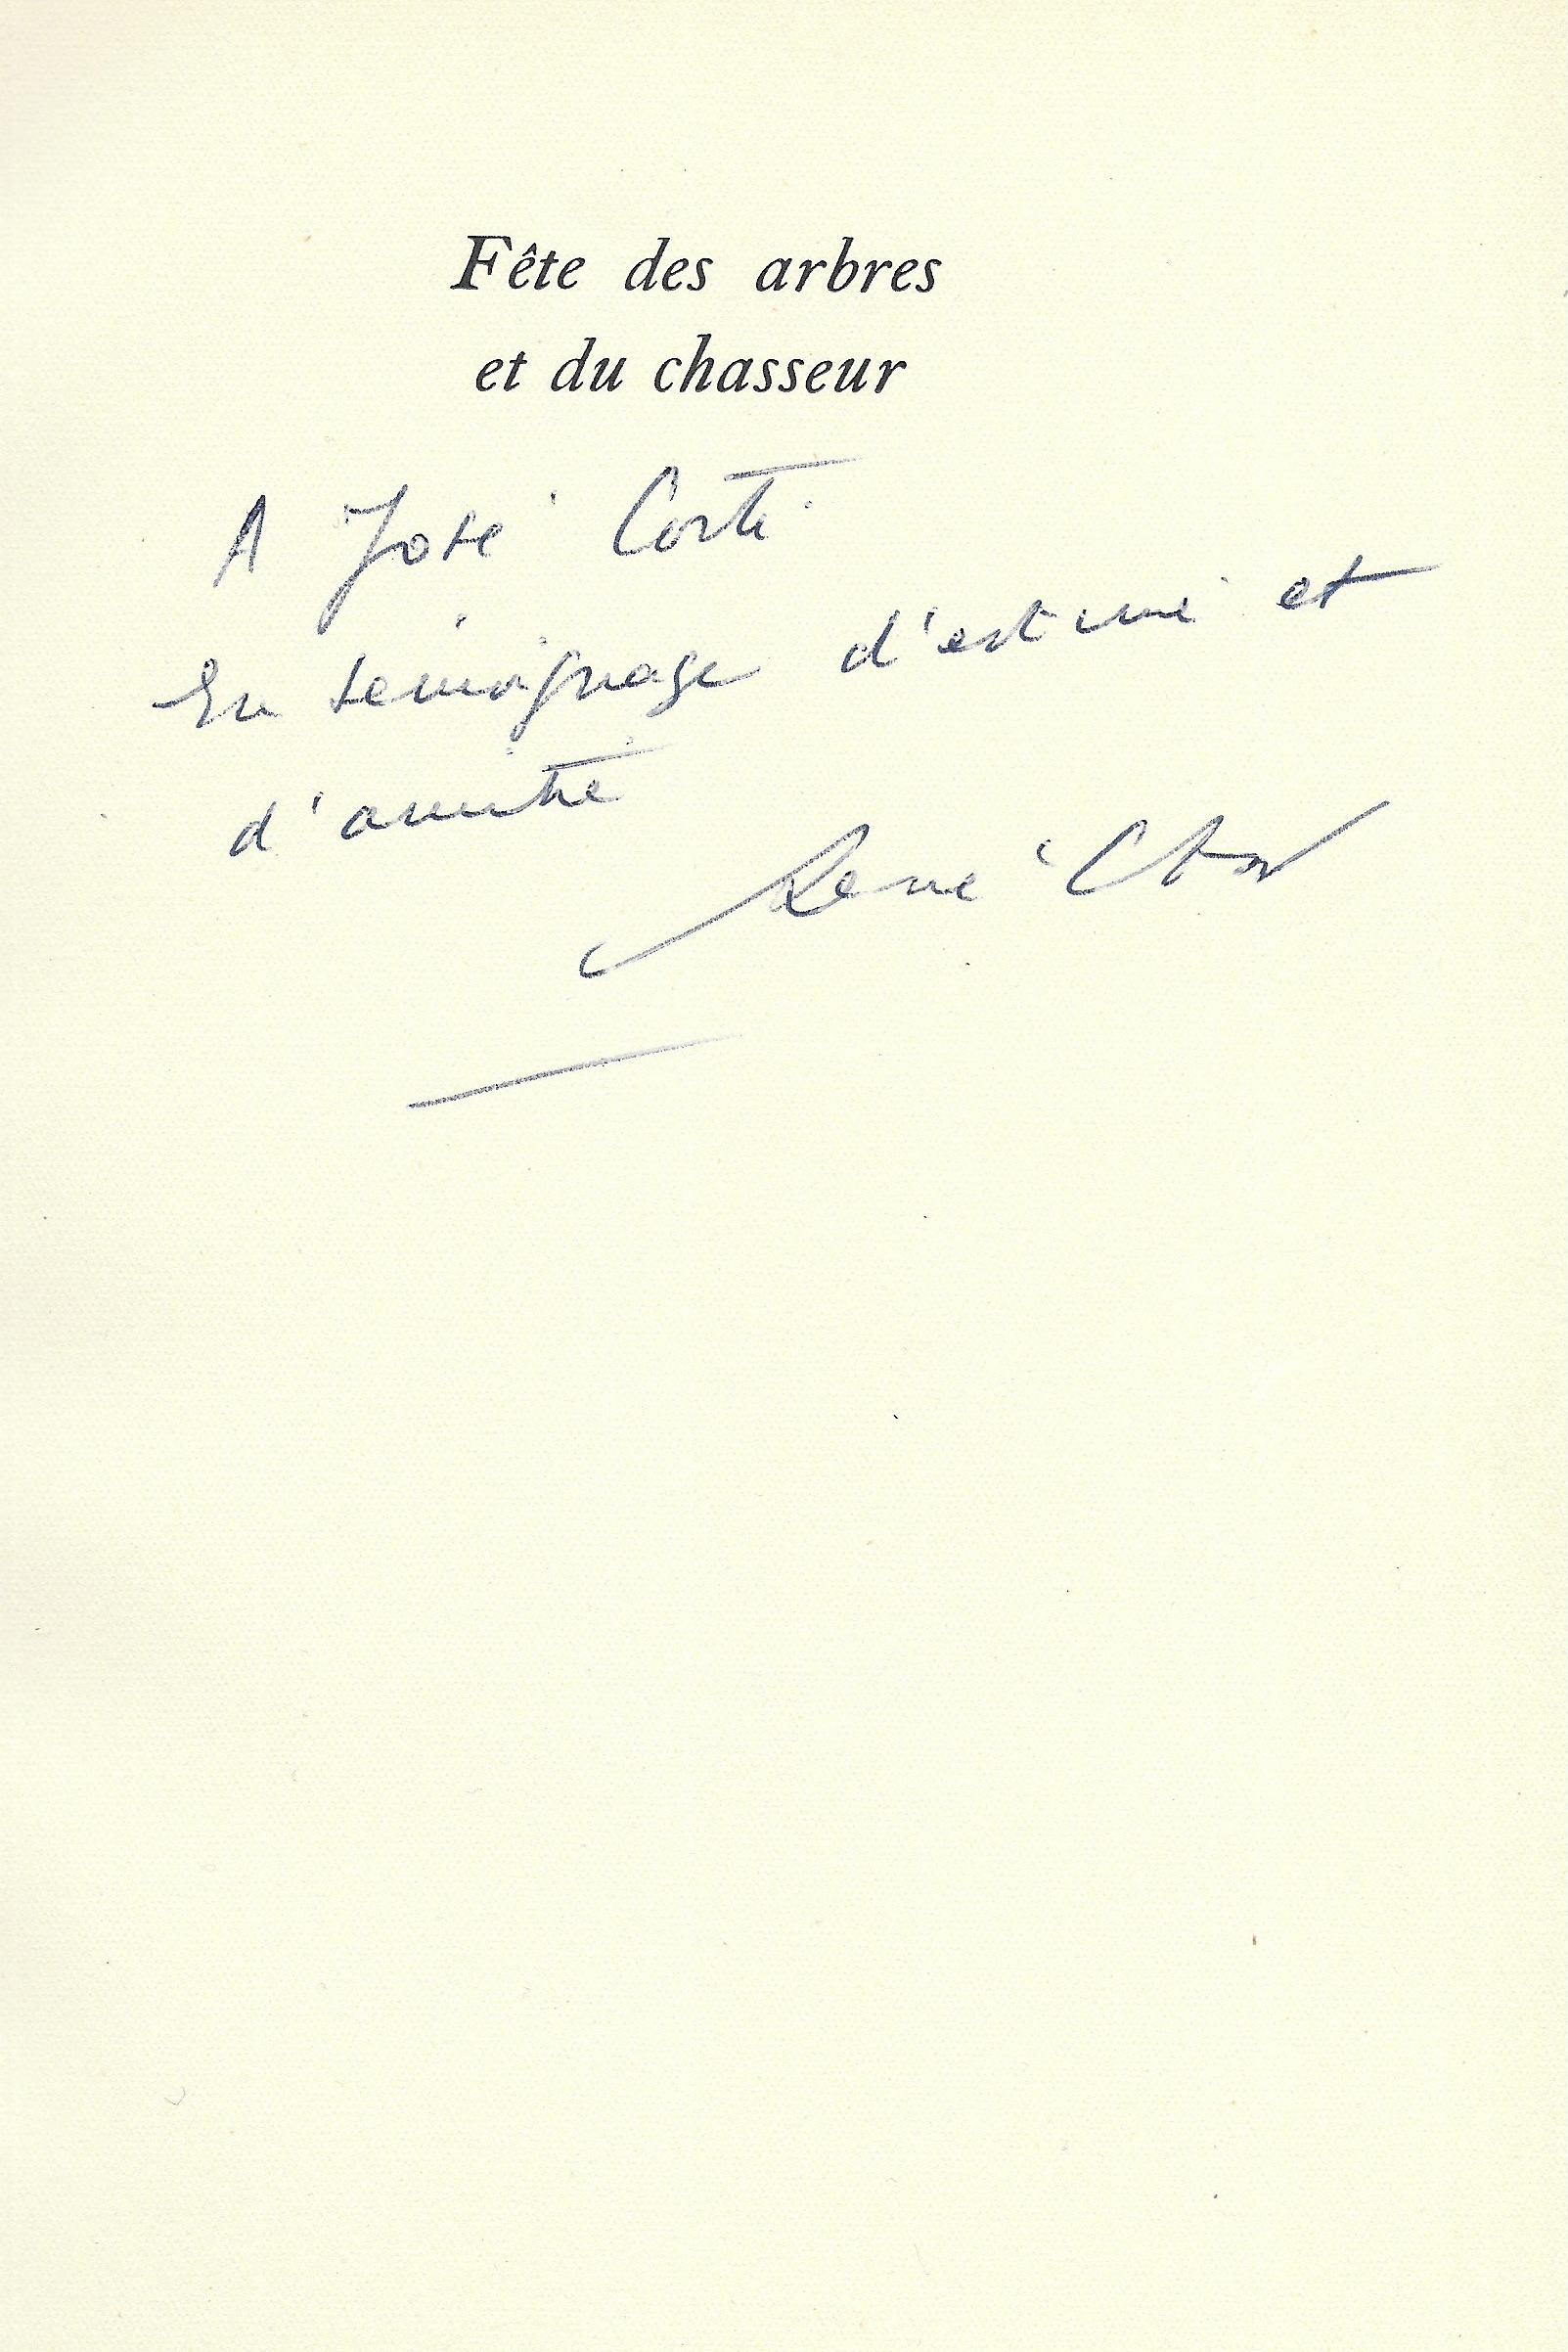 Fête des arbres
et du chasseur
A José Corti
En témoignage d'estime et
d'amitié
René Char